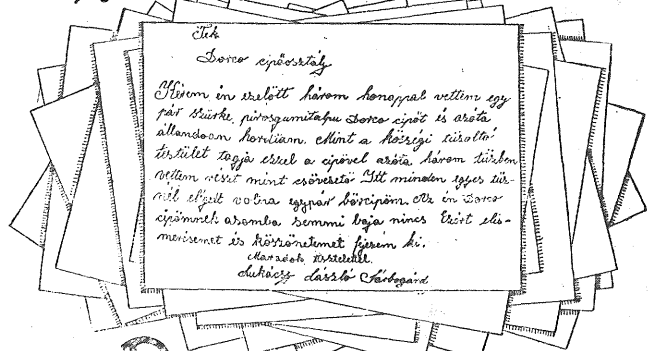 Tek.
Dorco cipőosztály
Kérem én ezelőtt három honappal vettem egy
pár szürke, pirosgumitalpu Dorco cipőt és azóta
állandoan hordtam. Mint a községi tüzoltó
testület tagja ezzel a cipővel azóta három tüzben
vettem részt mint csövezető. Itt minden egyes tüz-
nél elégett volna egypár bőrcipőm. Az én Dorco
cipőmnek azomba semmi baja nincs. Ezért elis-
merésemet és köszönetemet fejezem ki.
Maradok tisztelettel.
Lukácsz László Sárbogárd